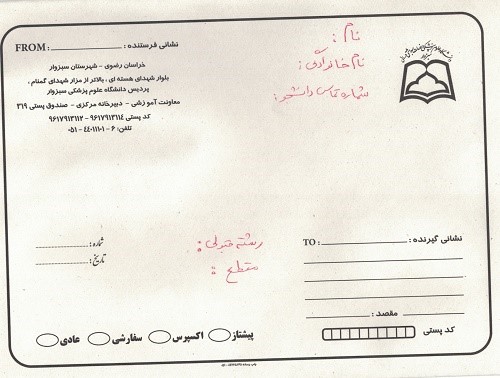 نشانی فرستنده : FROM :
خراسان رضوی - شهرستان سبزوار
بلوار شهدای هسته ای ، بالاتر از مزار شهدای گمنام ،
پردیس دانشگاه علوم پزشکی سبزوار
معاونت آموزشی - دبیرخانه مرکزی - صندوق پستی ۳۱۹
کد پستی ۹۶۱۷۹۱۳۱۱۴ - ۹۶۱۷۹۱۳۱۱۲
تلفن: ۶ - ۴۴۰۱۱۱۰۱ - ۰۵۱
نام :
نام خانوادگی :
شماره تماس دانشجو :
شماره :
تاریخ :
رشته قبولی :
مقطع :
نشانی گیرنده : TO :
مقصد :
کد پستی
پیشتاز اکسپرس سفارشی عادی